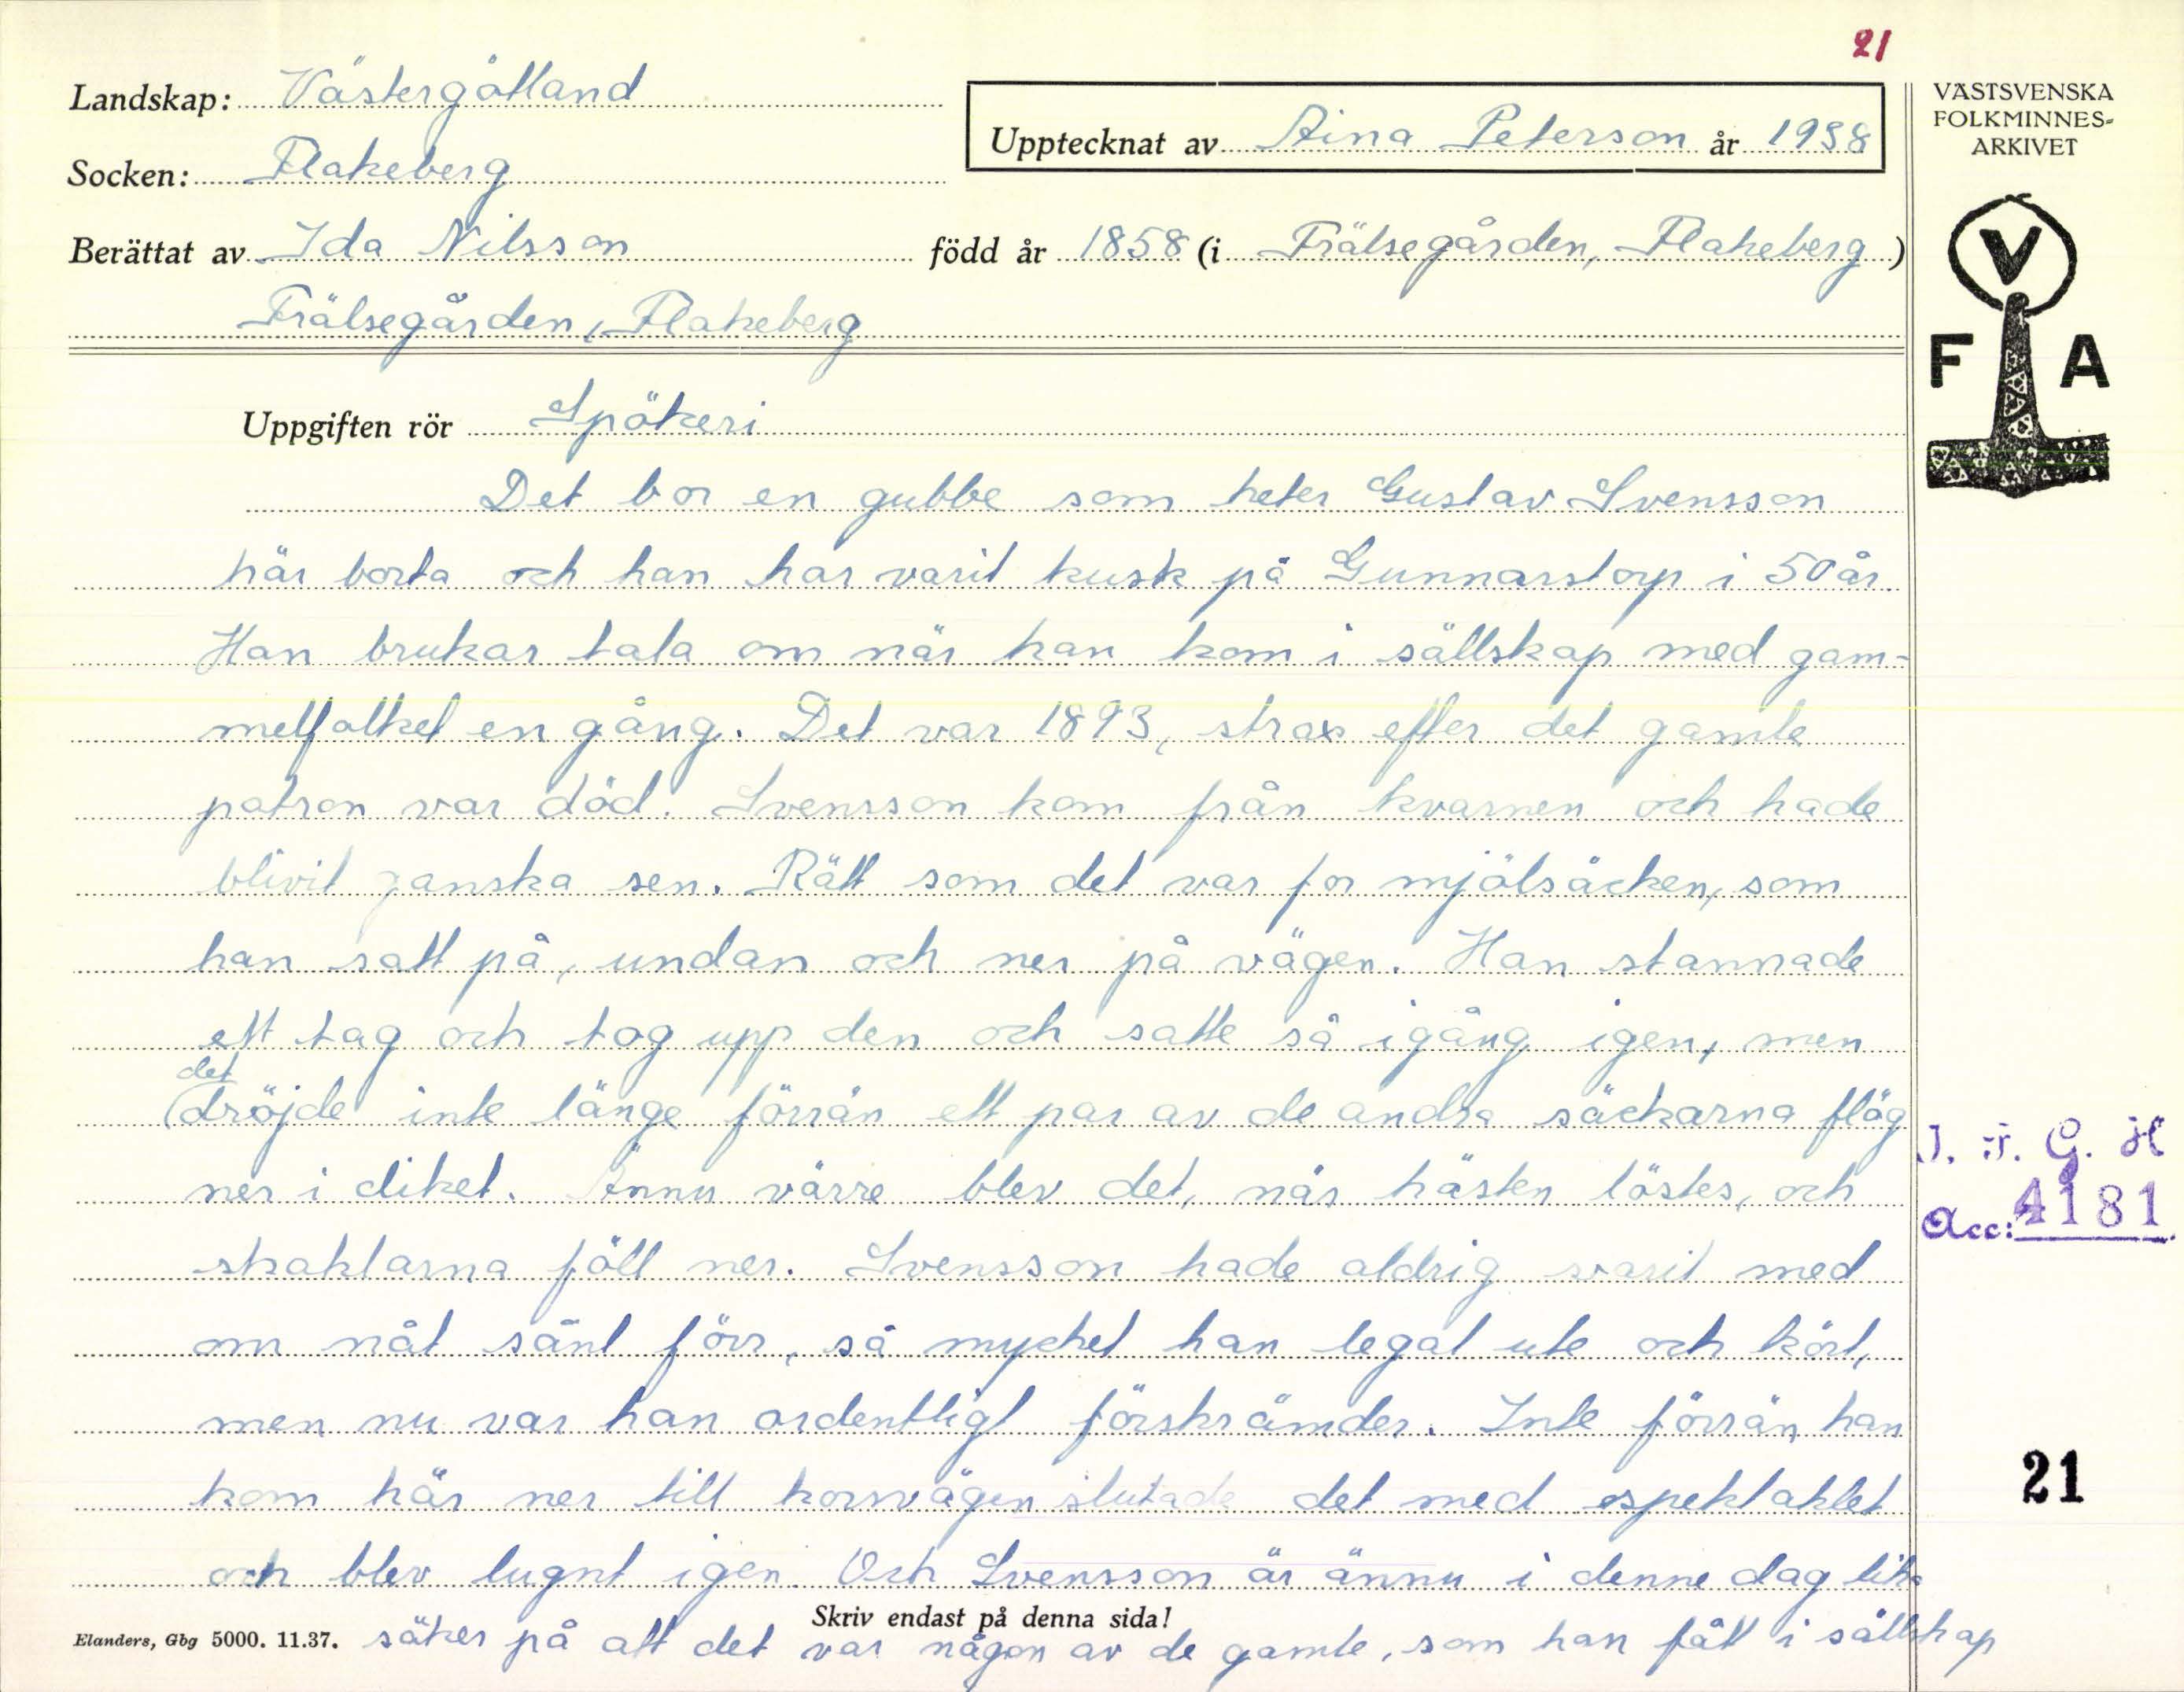 21
Landskap: Västergötland
Socken: Flakeberg
Upptecknat av Aina Peterson år 1938
Berättat av Ida Nilsson född år 1858 (i Frälsegården, Flakeberg)
Frälsegården, Flakeberg
VÄSTSVENSKA
FOLKMINNES-
ARKIVET
V
F A
Uppgiften rör Spökeri
Det bor en gubbe som heter Gustav Svensson
här borta och han har varit kusk på Gunnarstorp i 50 år.
Han brukar tala om när han kom i sällskap med gam-
melfolket en gång. Det var 1893, strax efter det gamle
patron var död. Svensson kom från kvarnen och hade
blivit ganska sen. Rätt som det var for mjölsäcken, som
han satt på, undan och ner på vägen. Han stannade
ett tag och tog upp den och satte så igång igen, men
det
dröjde inte länge förrän ett par av de andra säckarna flög
ner i diket. Ännu värre blev det, när hästen löstes, och
skaklarna föll ner. Svensson hade aldrig varit med
om nåt sånt förr, så mycket han legat ute och kört,
men nu var han ordentligt förskrämder. Inte förrän han
kom här ner till korsvägen slutade det med spektaklet
och blev lugnt igen. Och Svensson är ännu i denne dag lika
säker på att det var någon av de gamle, som han fått i sällskap
Skriv endast på denna sida!
Elanders, Gbg 5000. 11.37.
I. F. G. H
Acc: 4181
21